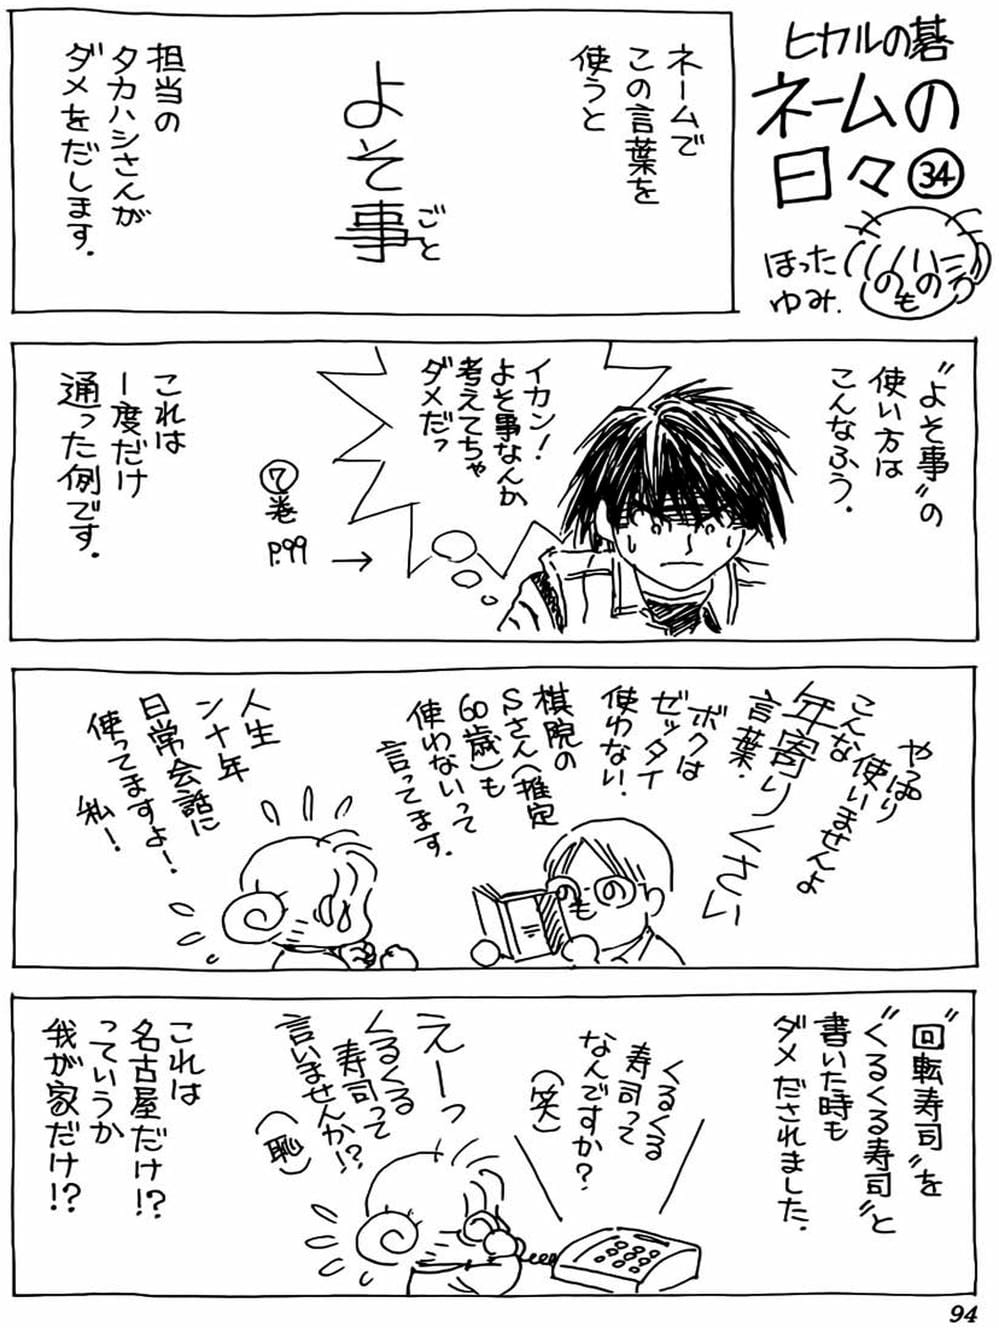 ヒカルの碁
ネームの
日々㉞
ほった
ゆみ.
のの
も
ネームで
この言葉を
使うと
よそ事
ごと
担当の
タカハシさんが
ダメをだします.
"よそ事"の
使い方は
こんなふう.
イカン!
よそ事なんか
考えてちゃ
ダメだっ
⑦巻
P.99 →
これは
一度だけ
通った例です.
やっぱり
使いませんよ
こんな
年寄りくさい
言葉.
ボクは
ゼッタイ
使わない.
棋院の
Sさん(推定
60歳)も
使わないって
言ってます.
のの
も
人生
ン十年
日常会話に
使ってますよ!
私!
"回転寿司"を
"くるくる寿司"と
書いた時も
ダメだされました.
くるくる
寿司って
なんですか?
(笑)
えーっ
くるくる
寿司って
言いませんか!?
(恥)
これは
名古屋だけ!?
っていうか
我が家だけ!?
94